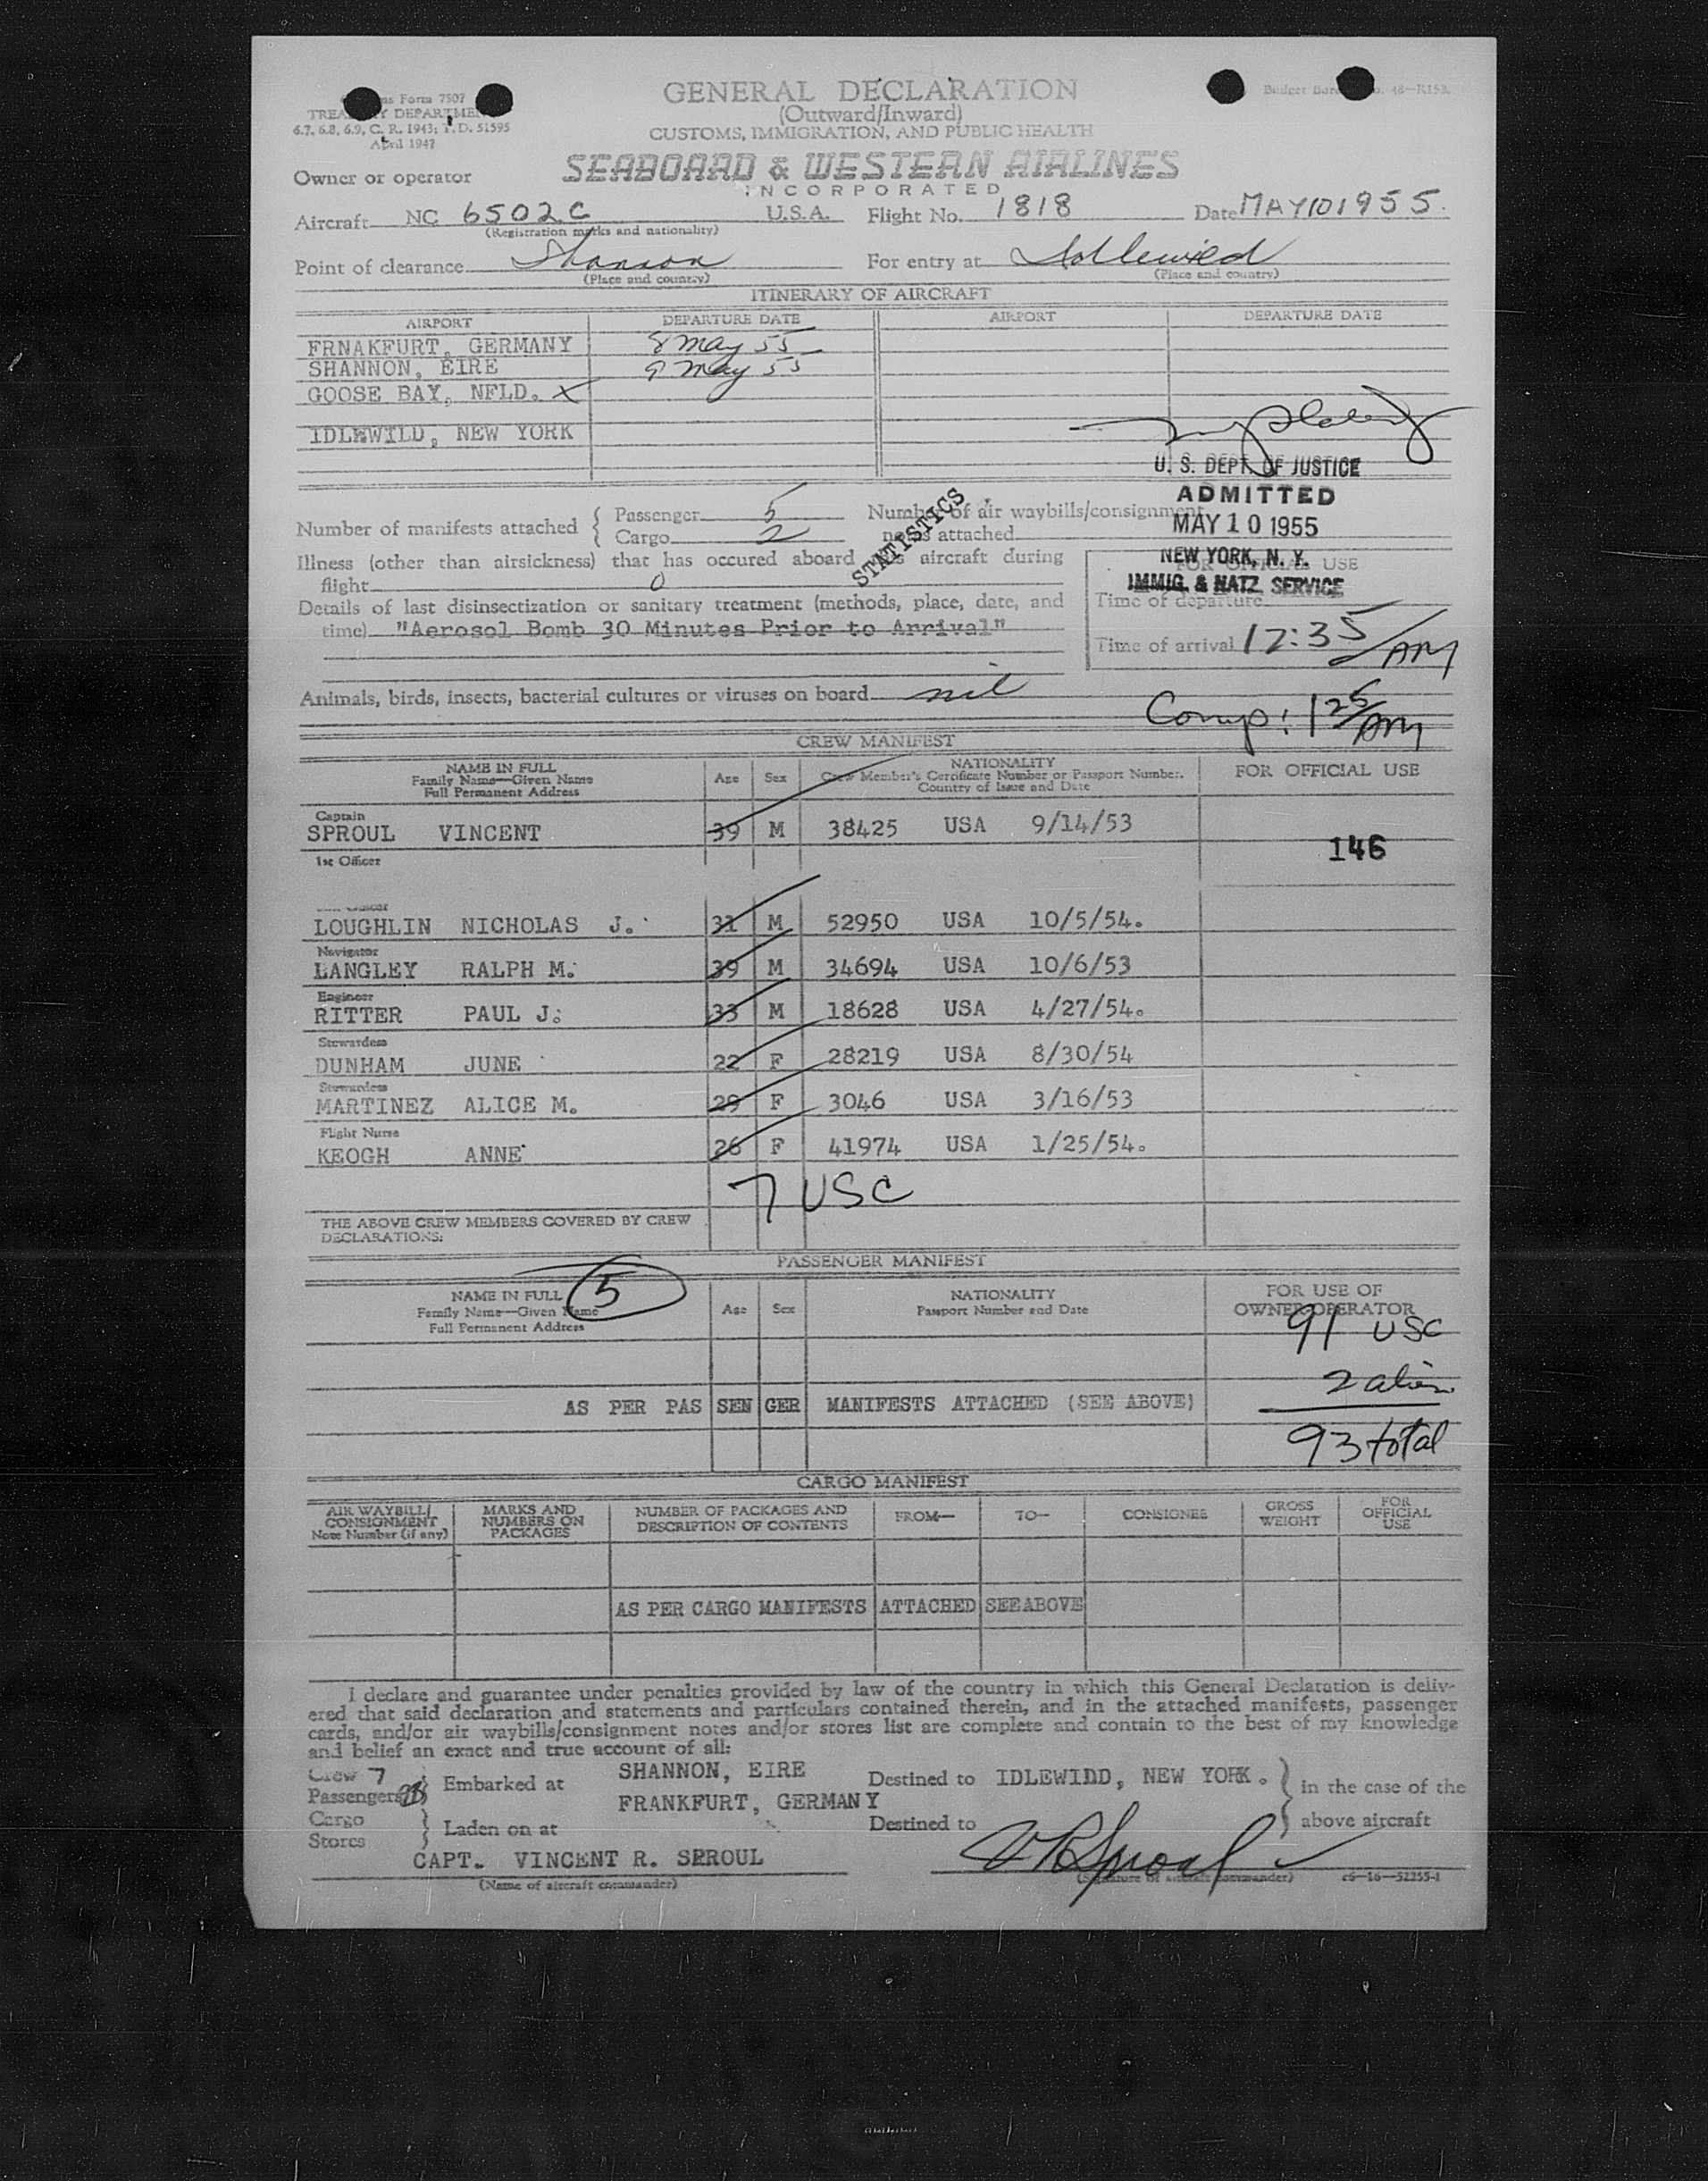 GENERAL DECLARATION
(Outward/Inward)
CUSTOMS, IMMIGRATION, AND PUBLIC HEALTH
Form 7507
TREASURY DEPARTMENT
6.7, 6.8, 6.9, C. R. 1943; T. D. 51595
April 1947
Budget No. 48—R153.
Owner or operator SEABOARD & WESTERN AIRLINES
INCORPORATED
Aircraft NC 6502C U.S.A. Flight No. 1818 Date MAY 10 1955.
(Registration marks and nationality)
Point of clearance Shannon For entry at Idlewild
(Place and country) (Place and country)
ITINERARY OF AIRCRAFT
AIRPORT DEPARTURE DATE AIRPORT DEPARTURE DATE
FRNAKFURT, GERMANY 8 May 55
SHANNON, EIRE 9 May 55
GOOSE BAY, NFLD. X
IDLEWILD, NEW YORK
U. S. DEPT. OF JUSTICE
ADMITTED
MAY 10 1955
NEW YORK, N. Y.
IMMIG. & NATZ. SERVICE
STATISTICS
Number of manifests attached { Passenger 5
Cargo 2
Number of air waybills/consignment
notes attached
Illness (other than airsickness) that has occured aboard aircraft during
flight 0
Details of last disinsectization or sanitary treatment (methods, place, date, and
time) "Aerosol Bomb 30 Minutes Prior to Arrival"
FOR OFFICIAL USE
Time of departure
Time of arrival 12:35/AM
Animals, birds, insects, bacterial cultures or viruses on board nil
Comp: 1 25/AM
CREW MANIFEST
NAME IN FULL
Family Name—Given Name
Full Permanent Address
Age Sex
NATIONALITY
Crew Member's Certificate Number or Passport Number.
Country of Issue and Date
FOR OFFICIAL USE
Captain
SPROUL VINCENT 39 M 38425 USA 9/14/53
146
1st Officer
LOUGHLIN NICHOLAS J. 31 M 52950 USA 10/5/54.
Navigator
LANGLEY RALPH M. 39 M 34694 USA 10/6/53
Engineer
RITTER PAUL J. 33 M 18628 USA 4/27/54.
Stewardess
DUNHAM JUNE 22 F 28219 USA 8/30/54
Stewardess
MARTINEZ ALICE M. 29 F 3046 USA 3/16/53
Flight Nurse
KEOGH ANNE 26 F 41974 USA 1/25/54.
7 USC
THE ABOVE CREW MEMBERS COVERED BY CREW
DECLARATIONS:
PASSENGER MANIFEST
5
NAME IN FULL
Family Name—Given Name
Full Permanent Address
Age Sex
NATIONALITY
Passport Number and Date
FOR USE OF
OWNER-OPERATOR
91 USC
2 alien
AS PER PAS SEN GER MANIFESTS ATTACHED (SEE ABOVE)
93 total
CARGO MANIFEST
AIR WAYBILL/
CONSIGNMENT
Note Number (if any)
MARKS AND
NUMBERS ON
PACKAGES
NUMBER OF PACKAGES AND
DESCRIPTION OF CONTENTS
FROM— TO— CONSIGNEE
GROSS
WEIGHT
FOR
OFFICIAL
USE
AS PER CARGO MANIFESTS ATTACHED SEE ABOVE
I declare and guarantee under penalties provided by law of the country in which this General Declaration is deliv-
ered that said declaration and statements and particulars contained therein, and in the attached manifests, passenger
cards, and/or air waybills/consignment notes and/or stores list are complete and contain to the best of my knowledge
and belief an exact and true account of all:
Crew 7
Passengers 93 } Embarked at SHANNON, EIRE Destined to IDLEWIDD, NEW YORK. } in the case of the
FRANKFURT, GERMANY
Cargo
Stores } Laden on at Destined to above aircraft
CAPT. VINCENT R. SPROUL V R Sproul
(Name of aircraft commander) (Signature of aircraft commander) c5—16—52255-1